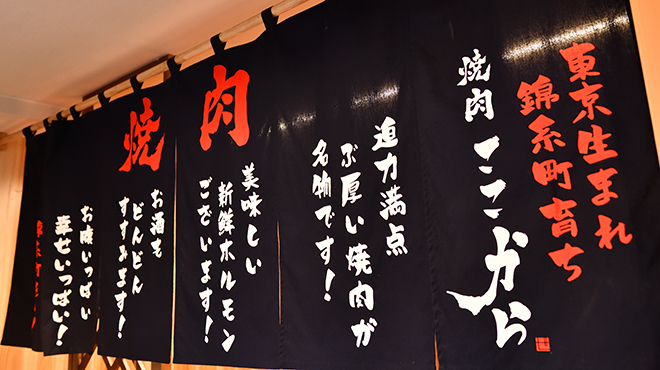 東京生まれ
錦糸町育ち
焼肉 ここから
迫力満点
ぶ厚い焼肉が
名物です!
焼肉
美味しい
新鮮ホルモン
ございます!
お酒も
どんどん
すすみます!
お腹いっぱい
幸せいっぱい!